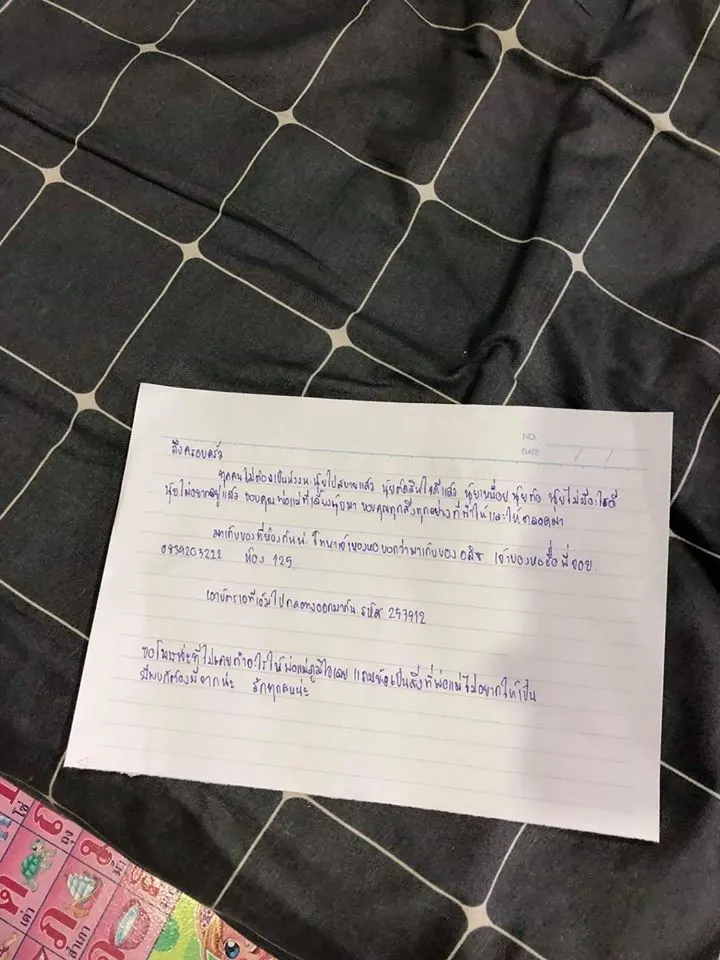 NO.
DATE / /
ถึงครอบครัว
ทุกคนไม่ต้องเป็นห่วงนะ นุ้ยไปสบายแล้ว นุ้ยตัดสินใจดีแล้ว นุ้ยเหนื่อย นุ้ยท้อ นุ้ยไม่มีอะไรดี
นุ้ยไม่อยากอยู่แล้ว ขอบคุณพ่อแม่ที่เลี้ยงนุ้ยมา ขอบคุณทุกสิ่งทุกอย่างที่ทำให้และให้ตลอดมา
มาเก็บของที่ห้องกันนะ โทหาเจ้าของหอบอกว่ามาเก็บของ เจ้าของหอชื่อพี่จอย
0839203222 ห้อง 125
เอาบัตรเอทีเอ็มไปกดตังออกมากัน รหัส 257912
ขอโทษนะที่ไม่เคยทำอะไรให้พ่อแม่ภูมิใจเลย แถมยังเป็นสิ่งที่พ่อแม่ไม่อยากให้เป็น
มีพบก็ต้องมีจากนะ รักทุกคนนะ
โซ่
ถุง
ต เต่า
ภ สำเภา